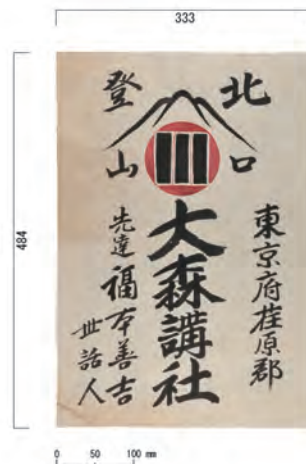 333
北口
登山
東京府荏原郡
大森講社
先達 福本善吉
世話人
484
0 50 100 mm